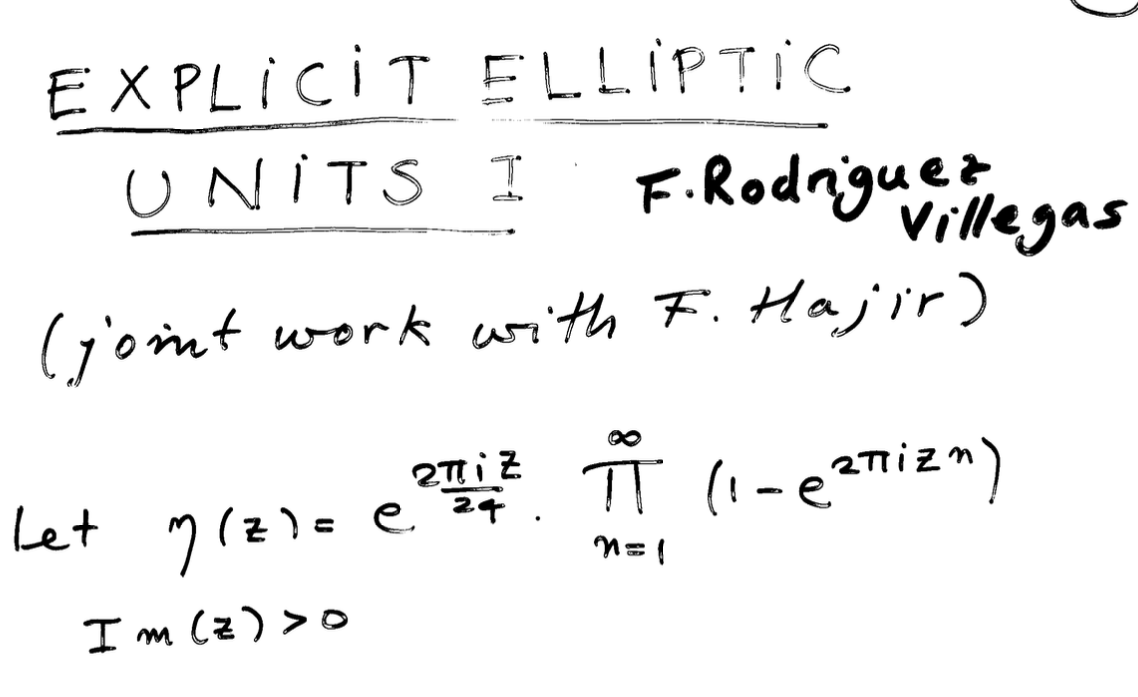 EXPLICIT ELLIPTIC
UNITS I F. Rodriguez Villegas
(joint work with F. Hajir)
Let η(z) = e^{2πiz/24} · ∏_{n=1}^{∞} (1 - e^{2πizn})
Im(z) > 0